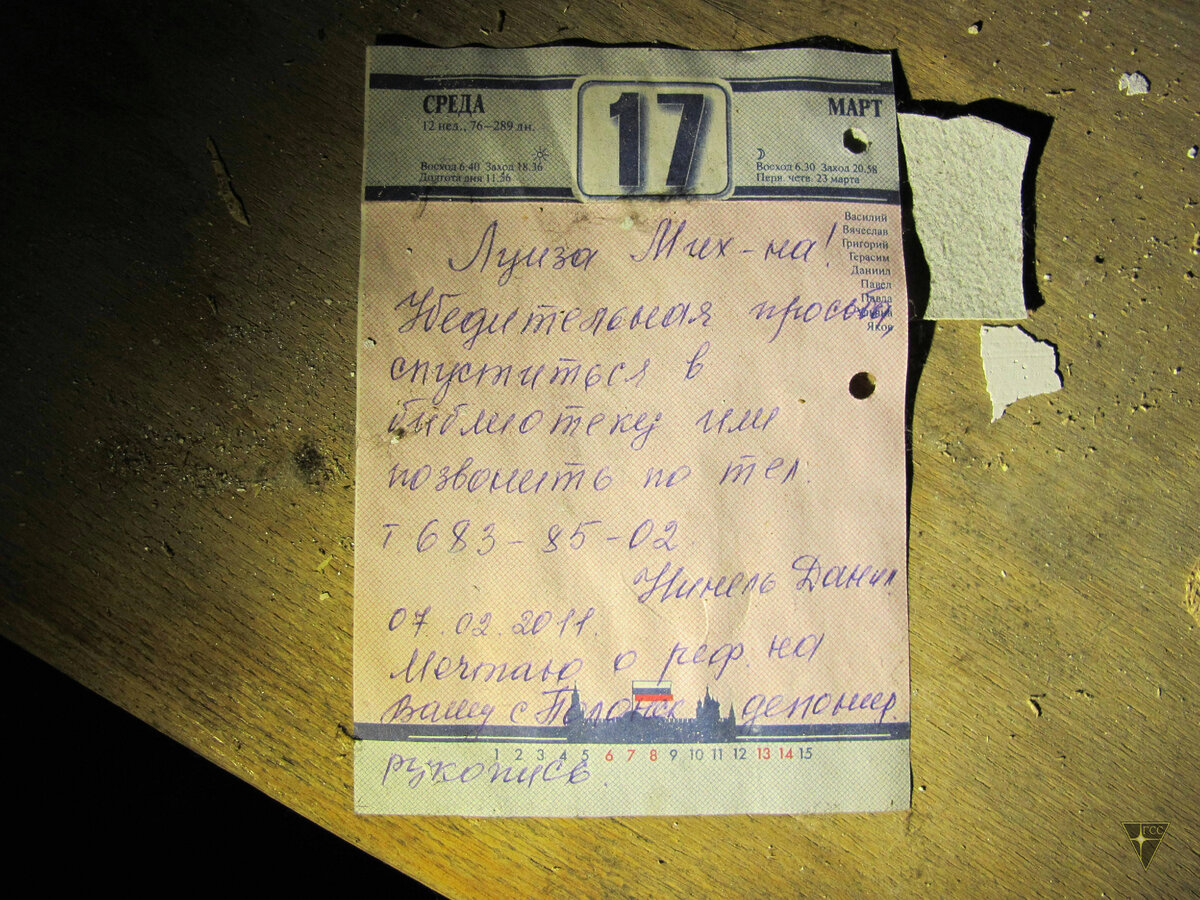 СРЕДА
17
МАРТ
12 нед., 76–289 дн.
Восход 6.40 Заход 18.36
Долгота дня 11.56
Восход 6.30 Заход 20.58
Перв. четв. 23 марта
Василий
Вячеслав
Григорий
Герасим
Даниил
Павел
Яков
Луиза Мих-на!
Убедительная просьба,
спуститься в
библиотеку или
позвонить по тел.
т 683-85-02
Нинель Данил.
07.02.2011.
Мечтаю о реф. на
Вашу с депонир.
1 2 3 4 5 6 7 8 9 10 11 12 13 14 15
рукопись.
ГСС